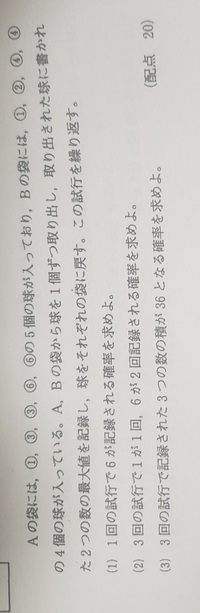 Aの袋には，①，③，③，⑥，⑥の5個の球が入っており，Bの袋には，①，②，④，④
の4個の球が入っている。A，Bの袋から球を1個ずつ取り出し，取り出された球に書かれ
た2つの数の最大値を記録し，球をそれぞれの袋に戻す。この試行を繰り返す。
(1) 1回の試行で6が記録される確率を求めよ。
(2) 3回の試行で1が1回，6が2回記録される確率を求めよ。
(3) 3回の試行で記録された3つの数の積が36となる確率を求めよ。
(配点 20)